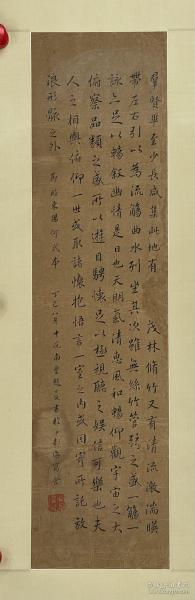 羣賢畢至少長咸集此地有 茂林脩竹又有清流激湍暎
帶左右引以為流觴曲水列坐其次雖無絲竹管弦之盛一觴一
詠亦足以暢敘幽情是日也天朗氣清惠風和暢仰觀宇宙之大
俯察品類之盛所以遊目騁懷足以極視聽之娛信可樂也夫
人之相與俯仰一世或取諸懷抱悟言一室之內或因寄所託放
浪形骸之外 東陽何氏本 丁巳八月十